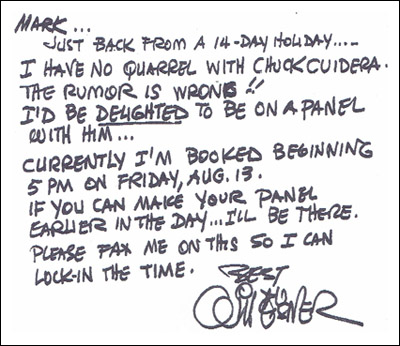 MARK...
JUST BACK FROM A 14-DAY HOLIDAY....
I HAVE NO QUARREL WITH CHUCK CUIDERA.
THE RUMOR IS WRONG!!
I'D BE DELIGHTED TO BE ON A PANEL
WITH HIM...
CURRENTLY I'M BOOKED BEGINNING
5 PM ON FRIDAY, AUG. 13.
IF YOU CAN MAKE YOUR PANEL
EARLIER IN THE DAY...I'LL BE THERE.
PLEASE FAX ME ON THIS SO I CAN
LOCK-IN THE TIME.
BEST
WILL EISNER